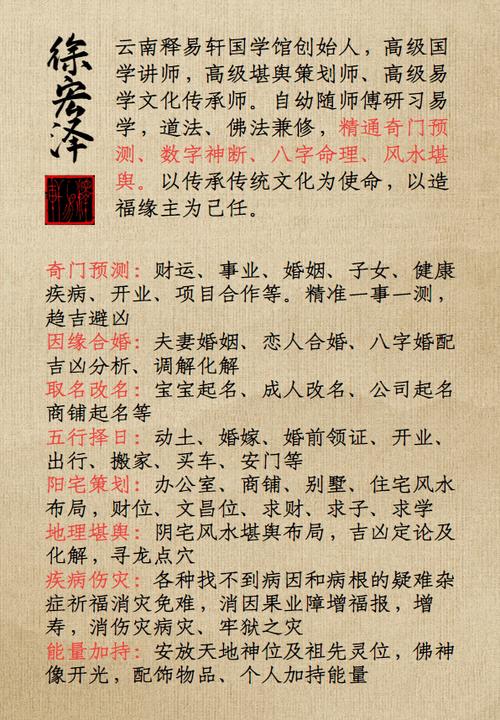 徐宏泽
云南释易轩国学馆创始人，高级国
学讲师，高级堪舆策划师、高级易
学文化传承师。自幼随师傅研习易
学，道法、佛法兼修，精通奇门预
测、数字神断、八字命理、风水堪
舆。以传承传统文化为使命，以造
福缘主为己任。
奇门预测：财运、事业、婚姻、子女、健康
疾病、开业、项目合作等。精准一事一测，
趋吉避凶
因缘合婚：夫妻婚姻、恋人合婚、八字婚配
吉凶分析、调解化解
取名改名：宝宝起名、成人改名、公司起名
商铺起名等
五行择日：动土、婚嫁、婚前领证、开业、
出行、搬家、买车、安门等
阳宅策划：办公室、商铺、别墅、住宅风水
布局，财位、文昌位、求财、求子、求学
地理堪舆：阴宅风水堪舆布局，吉凶定论及
化解，寻龙点穴
疾病伤灾：各种找不到病因和病根的疑难杂
症祈福消灾免难，消因果业障增福报，增
寿，消伤灾病灾、牢狱之灾
能量加持：安放天地神位及祖先灵位，佛神
像开光，配饰物品、个人加持能量